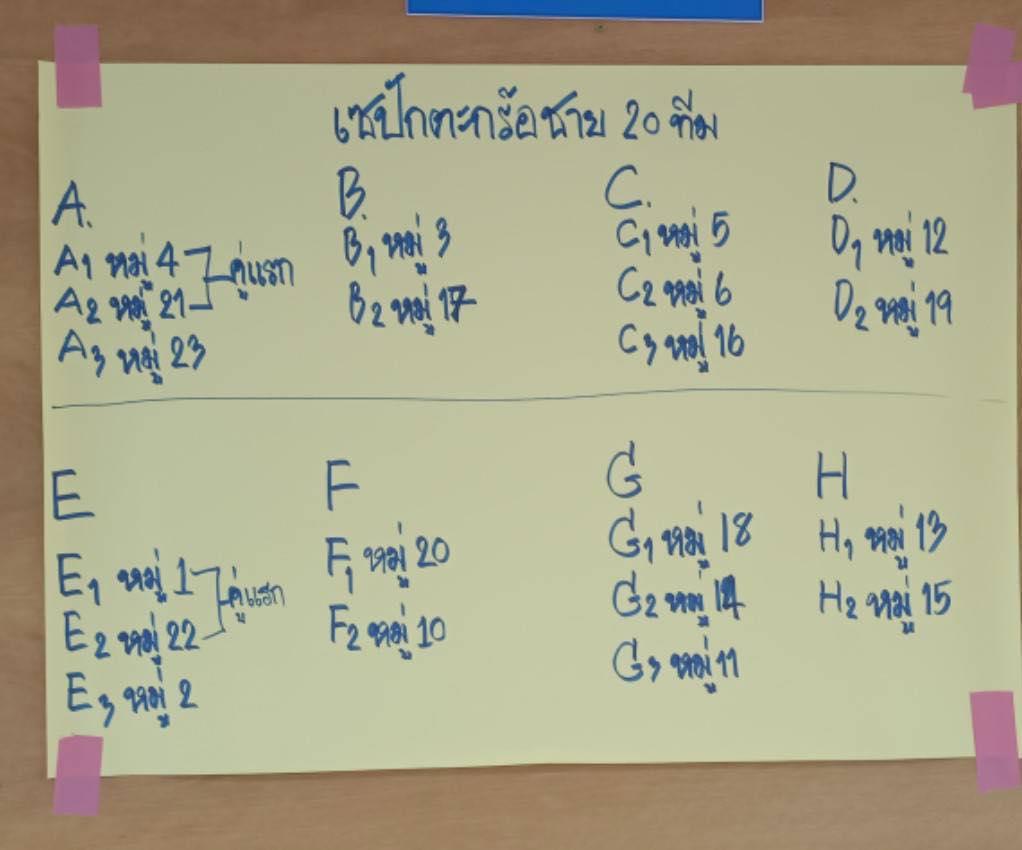 เซปักตะกร้อชาย 20 ทีม
A.
A1 หมู่ 4
A2 หมู่ 21
คู่แรก
A3 หมู่ 23
B.
B1 หมู่ 3
B2 หมู่ 17
C.
C1 หมู่ 5
C2 หมู่ 6
C3 หมู่ 16
D.
D1 หมู่ 12
D2 หมู่ 19
E
E1 หมู่ 1
E2 หมู่ 22
คู่แรก
E3 หมู่ 2
F
F1 หมู่ 20
F2 หมู่ 10
G
G1 หมู่ 18
G2 หมู่ 14
G3 หมู่ 11
H
H1 หมู่ 13
H2 หมู่ 15